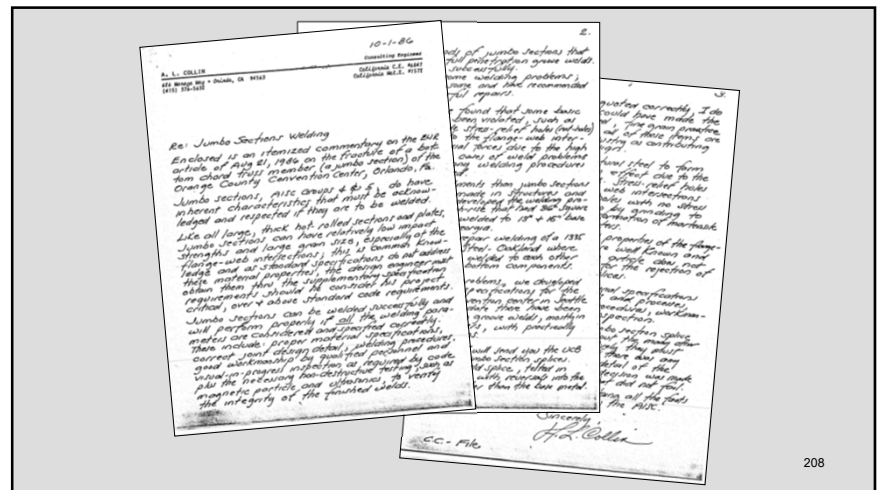 10-1-86
A. L. COLLIN
Consulting Engineer
California C.E.
California Met.E.
Orinda, CA 94563
Re: Jumbo Sections Welding
Enclosed is an itemized commentary on the ENR
article of Aug 21, 1986 on the fracture of a bot-
tom chord truss member (a jumbo section) of the
Orange County Convention Center, Orlando, Fla.
Jumbo sections, AISC Groups 4 & 5, do have
inherent characteristics that must be acknow-
ledged and respected if they are to be welded.
Like all large, thick hot-rolled sections and plates,
Jumbo Sections can have relatively low impact
strengths and large grain size, especially at the
flange-web intersections; this is common know-
ledge and as standard specifications do not address
these material properties, the design engineer must
obtain them thru the supplementary specification
requirements should he consider his project
critical, over & above standard code requirements.
Jumbo sections can be welded successfully and
will perform properly if all the welding para-
meters are considered and specified correctly.
These include: proper material specifications,
correct joint design detail, welding procedures,
good workmanship by qualified personnel and
visual-in-progress inspection as required by code
plus the necessary non-destructive testing, such as
magnetic particle and ultrasonics to verify
the integrity of the finished welds.
2.
of jumbo sections that
full penetration groove welds.
successfully.
some welding problems;
and have recommended
repairs.
found that some basic
been violated, such as
stress-relief holes (rat holes)
the flange-web inter-
forces due to the high
cases of weld problems
welding procedures
than jumbo sections
made in structures and
developed the welding pro-
that had 36" square
welded to 15" & 16" base
repair welding of a 1335
Steel - Oakland where
welded to each other
bottom components.
problems, we developed
specifications for the
convention center in Seattle
date there have been
groove welds, mostly in
with practically
and send you the UCB
Jumbo Section splices.
splice, tested in
with reversals into the
than the base metal.
3.
quoted correctly, I do
could have made the
fine grain practice
all of these items are
as contributing
steel to form
effect due to the
Stress-relief holes
web intersections
holes with no stress
by grinding to
formation of martensite
properties of the flange-
are well known and
article does not
for the rejection of
specifications
and processes,
workman-
section splice
the many other
they must
there was any
detail of the
decision was made
that did not fail.
all the facts
the AISC.
Sincerely,
A. L. Collin
C.C. - File
208